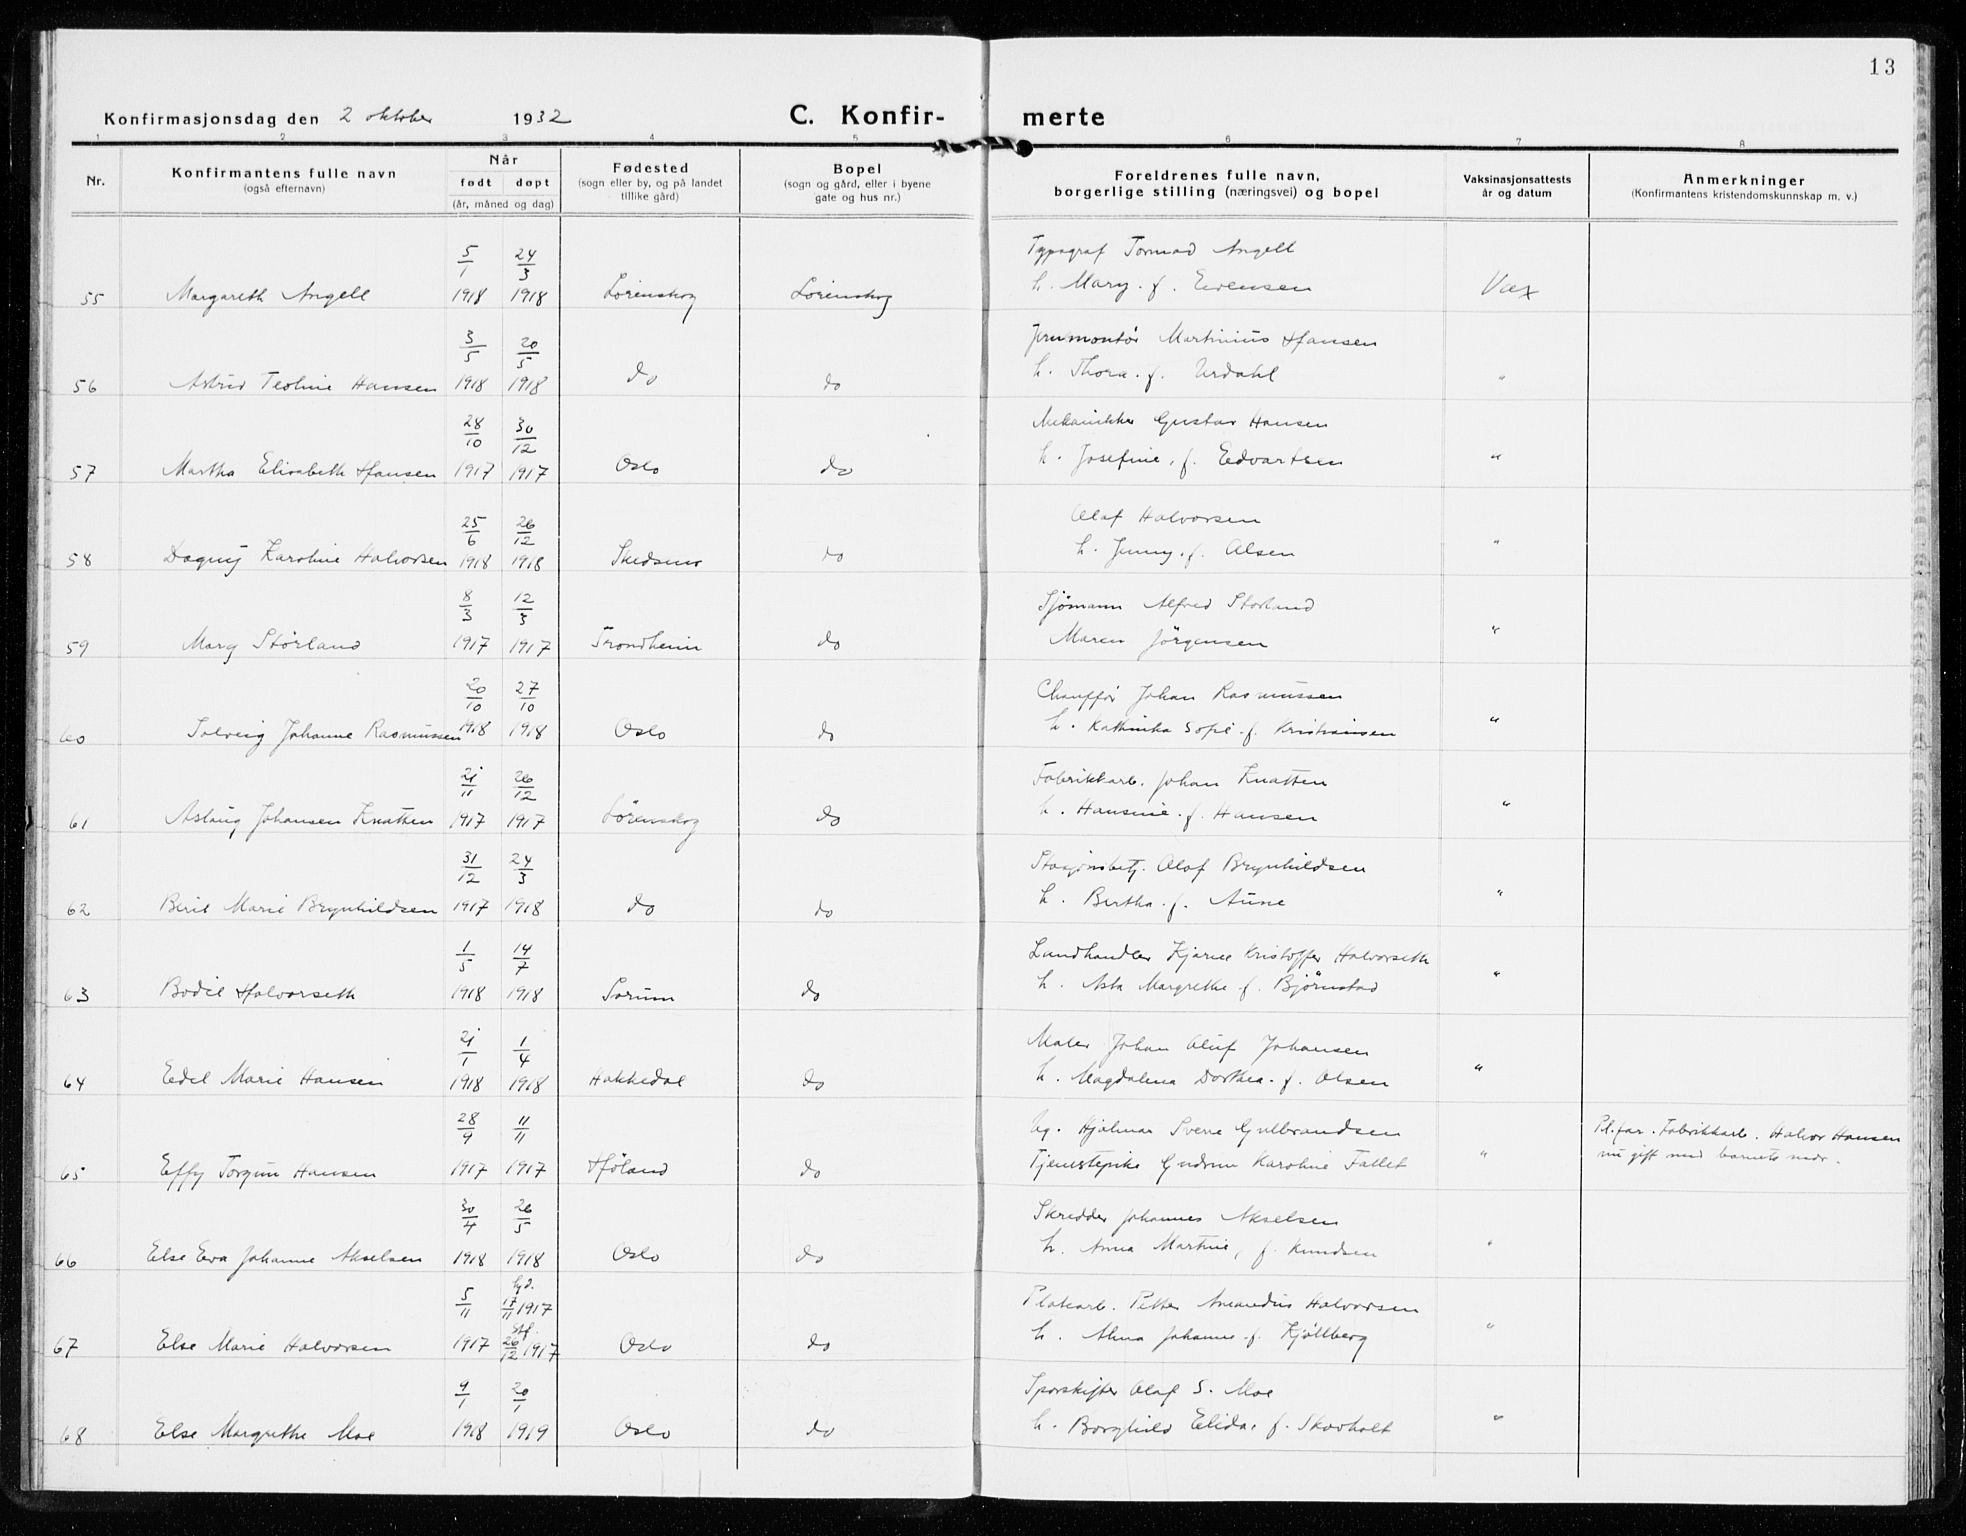 13
Konfirmasjonsdag den 2 oktober 1932 C. Konfir- merte
1 2 3 4 5 6 7 8
Nr.
Konfirmantens fulle navn
(også efternavn)
Når
født døpt
(år, måned og dag)
Fødested
(sogn eller by, og på landet
tillike gård)
Bopel
(sogn og gård, eller i byene
gate og hus nr.)
Foreldrenes fulle navn,
borgerlige stilling (næringsvei) og bopel
Vaksinasjonsattests
år og datum
Anmerkninger
(Konfirmantens kristendomskunnskap m. v.)
5/1 24/3 Typograf Tormod Angell
55 Margareth Angell 1918 1918 Lørenskog Lørenskog h. Mary. f. Evensen Vax
3/5 20/5 Jernmontør Martinius Hansen
56 Astrid Teoline Hansen 1918 1918 do do h. Thora. f. Urdahl "
28/10 30/12 Mekanikker Gustav Hansen
57 Martha Elisabeth Hansen 1917 1917 Oslo do h. Josefine, f. Edvartsen "
25/6 26/12 Olaf Halvorsen
58 Dagny Karoline Halvorsen 1918 1918 Skedsmo do h. Jenny. f. Olsen "
8/3 12/3 Sjømann Alfred Storland
59 Mary Størland 1917 1917 Trondheim do Maren Jörgensen "
20/10 27/10 Chauffør Johan Rasmussen
60 Solveig Johanne Rasmussen 1918 1918 Oslo do h. Kathinka Sofie. f. Kristiansen "
21/11 26/12 Fabrikkarb. Johan Knatten
61 Aslaug Johansen Knatten 1917 1917 Lørenskog do h. Hansine. f. Hansen "
31/12 24/3 Stasjonsbetj. Olaf Brynhildsen
62 Beril Marie Brynhildsen 1917 1918 do do h. Bertha. f. Aune "
1/5 14/7 Landhandler Kristoffer Halvorseth
63 Bodil Halvorseth 1918 1918 Sørum do h. Asta Margrethe f. Bjørnstad "
21/1 1/4 Maler Johan Oluf Johansen
64 Edel Marie Hansen 1918 1918 Hakkedal do h. Magdalena Dorthea. f. Olsen "
28/9 11/11 Ug. Hjalmar Sverre Gulbrandsen Pl.far. Fabrikkarb. Halvor Hansen
65 Effy Torgun Hansen 1917 1917 Høland do Tjenestepike Gudrun Karoline Fallet " nu gift med barnets mor.
30/4 26/5 Skredder Johannes Akselsen
66 Else Eva Johanne Akselsen 1918 1918 Oslo do h. Anna Martine, f. Knudsen "
5/11 hjd. 17/11 1917 Platearb. Petter Amandus Halvorsen
67 Else Marie Halvorsen 1917 Stf. 26/12 1917 Oslo do h. Alma Johanne. f. Kjöllberg "
9/1 20/1 Sporskifter Olaf S. Moe
68 Else Margrethe Moe 1918 1919 Oslo do h. Borghild Elida. f. Skovholt "